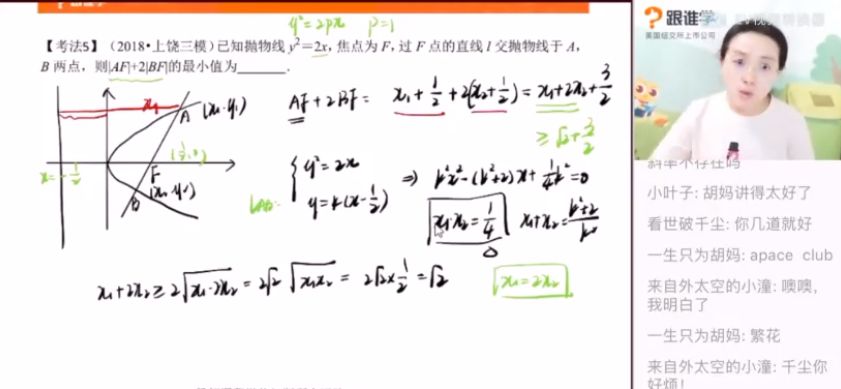 y²=2px p=1
【考法5】(2018•上饶三模)已知抛物线 y²=2x,焦点为 F,过 F 点的直线 l 交抛物线于 A,
B 两点,则|AF|+2|BF|的最小值为______.
AF+2BF= x₁+1/2+2(x₂+1/2)=x₁+2x₂+3/2
≥√2+3/2
x₁
A (x₁,y₁)
(1/2,0)
F
x=-1/2
B
LAB:
{y²=2x
y=k(x-1/2)
⇒ k²x²-(k²+2)x+1/4k²=0
x₁·x₂=1/4 x₁+x₂=k²+2/k²
x₁+2x₂≥2√x₁·2x₂=2√2 √x₁x₂=2√2×1/2=√2 x₁=2x₂
跟谁学
美国纽交所上市公司
斜率不存在吗
小叶子: 胡妈讲得太好了
看世破千尘: 你几道就好
一生只为胡妈: apace club
来自外太空的小潼: 噢噢,
我明白了
一生只为胡妈: 繁花
来自外太空的小潼: 千尘你
好烦!